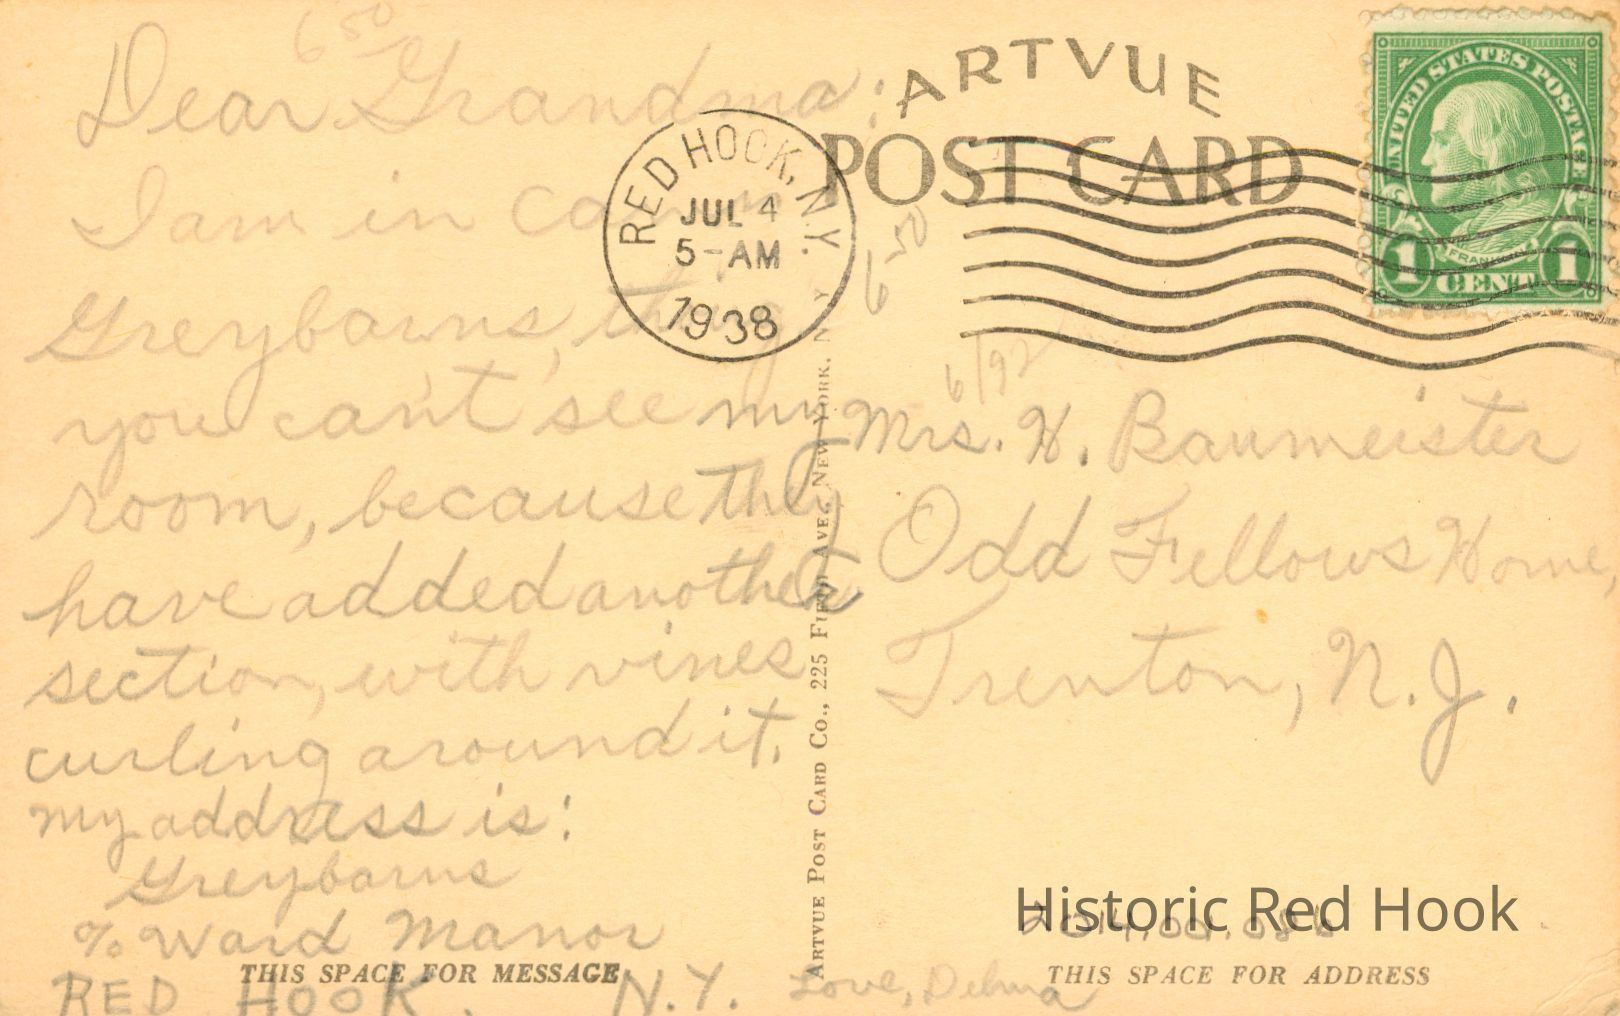 6 50
Dear Grandma:
I am in camp
Greybarns, tho'
you can't see my
room, because they
have added another
section, with vines
curling around it.
my address is:
Greybarns
% Ward Manor
RED HOOK, N.Y.
Love, Delma
THIS SPACE FOR MESSAGE
RED HOOK, N.Y.
JUL 4
5-AM
1938
ARTVUE
POST CARD
UNITED STATES POSTAGE
FRANKLIN
1 CENT 1
6 50
6/92
ARTVUE POST CARD CO., 225 FIFTH AVE., NEW YORK, N. Y.
Mrs. H. Baumeister
Odd Fellows Home,
Trenton, N.J.
Historic Red Hook
THIS SPACE FOR ADDRESS